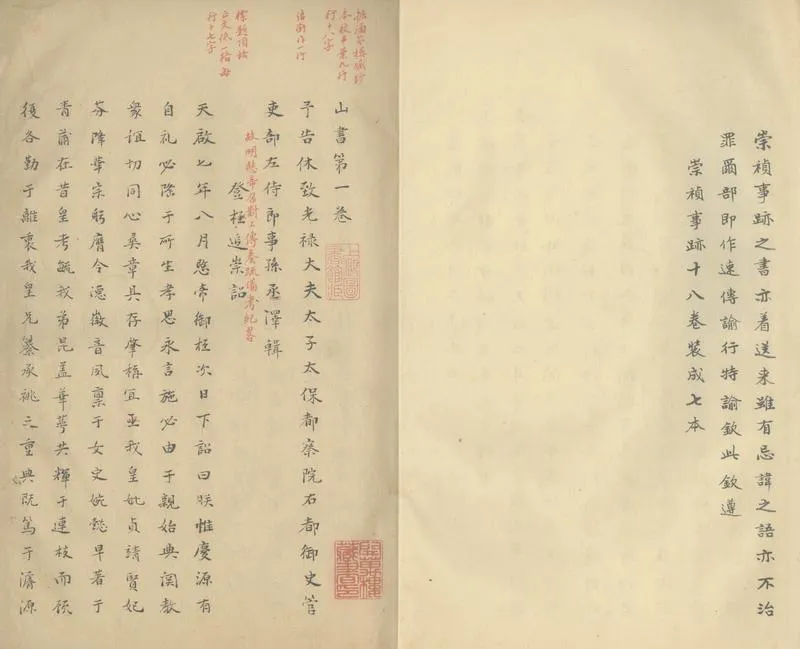 崇禎事跡之書亦着送來雖有忌諱之語亦不治
罪爾部即作速傳諭行特諭欽此欽遵
崇禎事跡十八卷裝成七本
山書第一卷
予告休致光禄大夫太子太保都察院右都御史管
吏部左侍郎事孫丞澤輯
故明愍帝召對之傳奏疏備考紀畧
登極追崇詔
天啟七年八月愍帝御極次日下詔曰朕惟慶源有
自礼必隆于所生孝思永言施必由于親始典関教
衆誼切同心奠章具存肇稱宜亟我皇妣貞靖賢妃
芬降華宗躬膺令德徽音夙稟于女史婉懿早著于
青蒲在昔皇考毓我弟昆盖華萼共輝于連枝而顧
復各勤于離裏我皇兄纂承祧之重典既篤于濬源
本校半葉九行
行十八字
行十七字